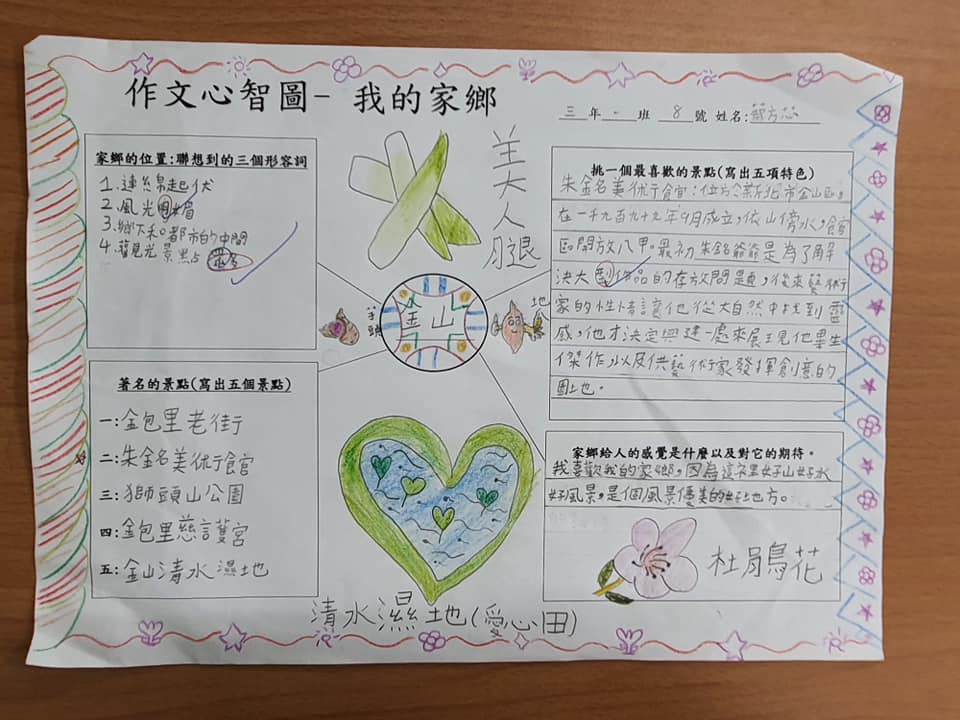 作文心智圖- 我的家鄉
三年 - 班 8 號 姓名:
家鄉的位置:聯想到的三個形容詞
1.連綿起伏
2.風光明媚
3.鄉下和都市的中間
4.舊見光景點
美人腿
芋頭
金山
地
挑一個最喜歡的景點(寫出五項特色)
朱金名美術食官:位於新北市金山區。
在一千九百九十九年9月成立,依山傍水,食官
區開放八甲。最初朱銘爺爺是為了解
決大型作品的存放問題,後來藝術
家的性情讓他從大自然中找到靈
感,他才決定興建一處來展現他畢生
傑作,以及供藝術家發揮創意的
園地。
著名的景點(寫出五個景點)
一:金包里老街
二:朱金名美術食官
三:獅頭山公園
四:金包里慈護宮
五:金山清水濕地
家鄉給人的感覺是什麼以及對它的期待。
我喜歡我的家鄉,因為這裡好山好水
好風景,是個風景優美的好地方。
杜鵑花
清水濕地(愛心田)